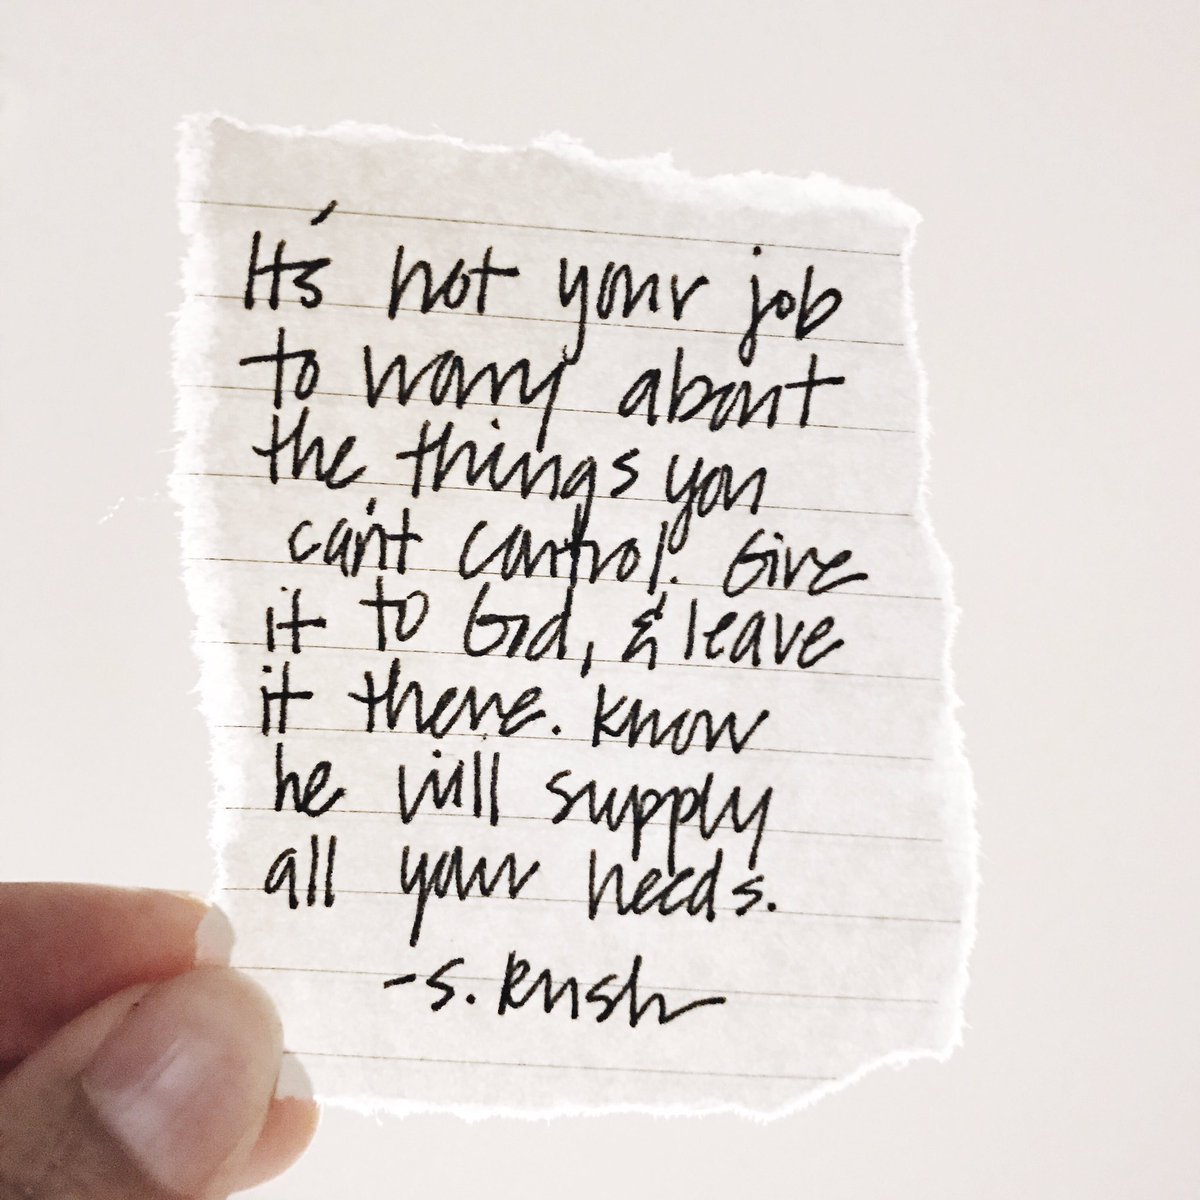 It's not your job
to worry about
the things you
can't control. Give
it to God, & leave
it there. Know
he will supply
all your needs.
-S. Rush